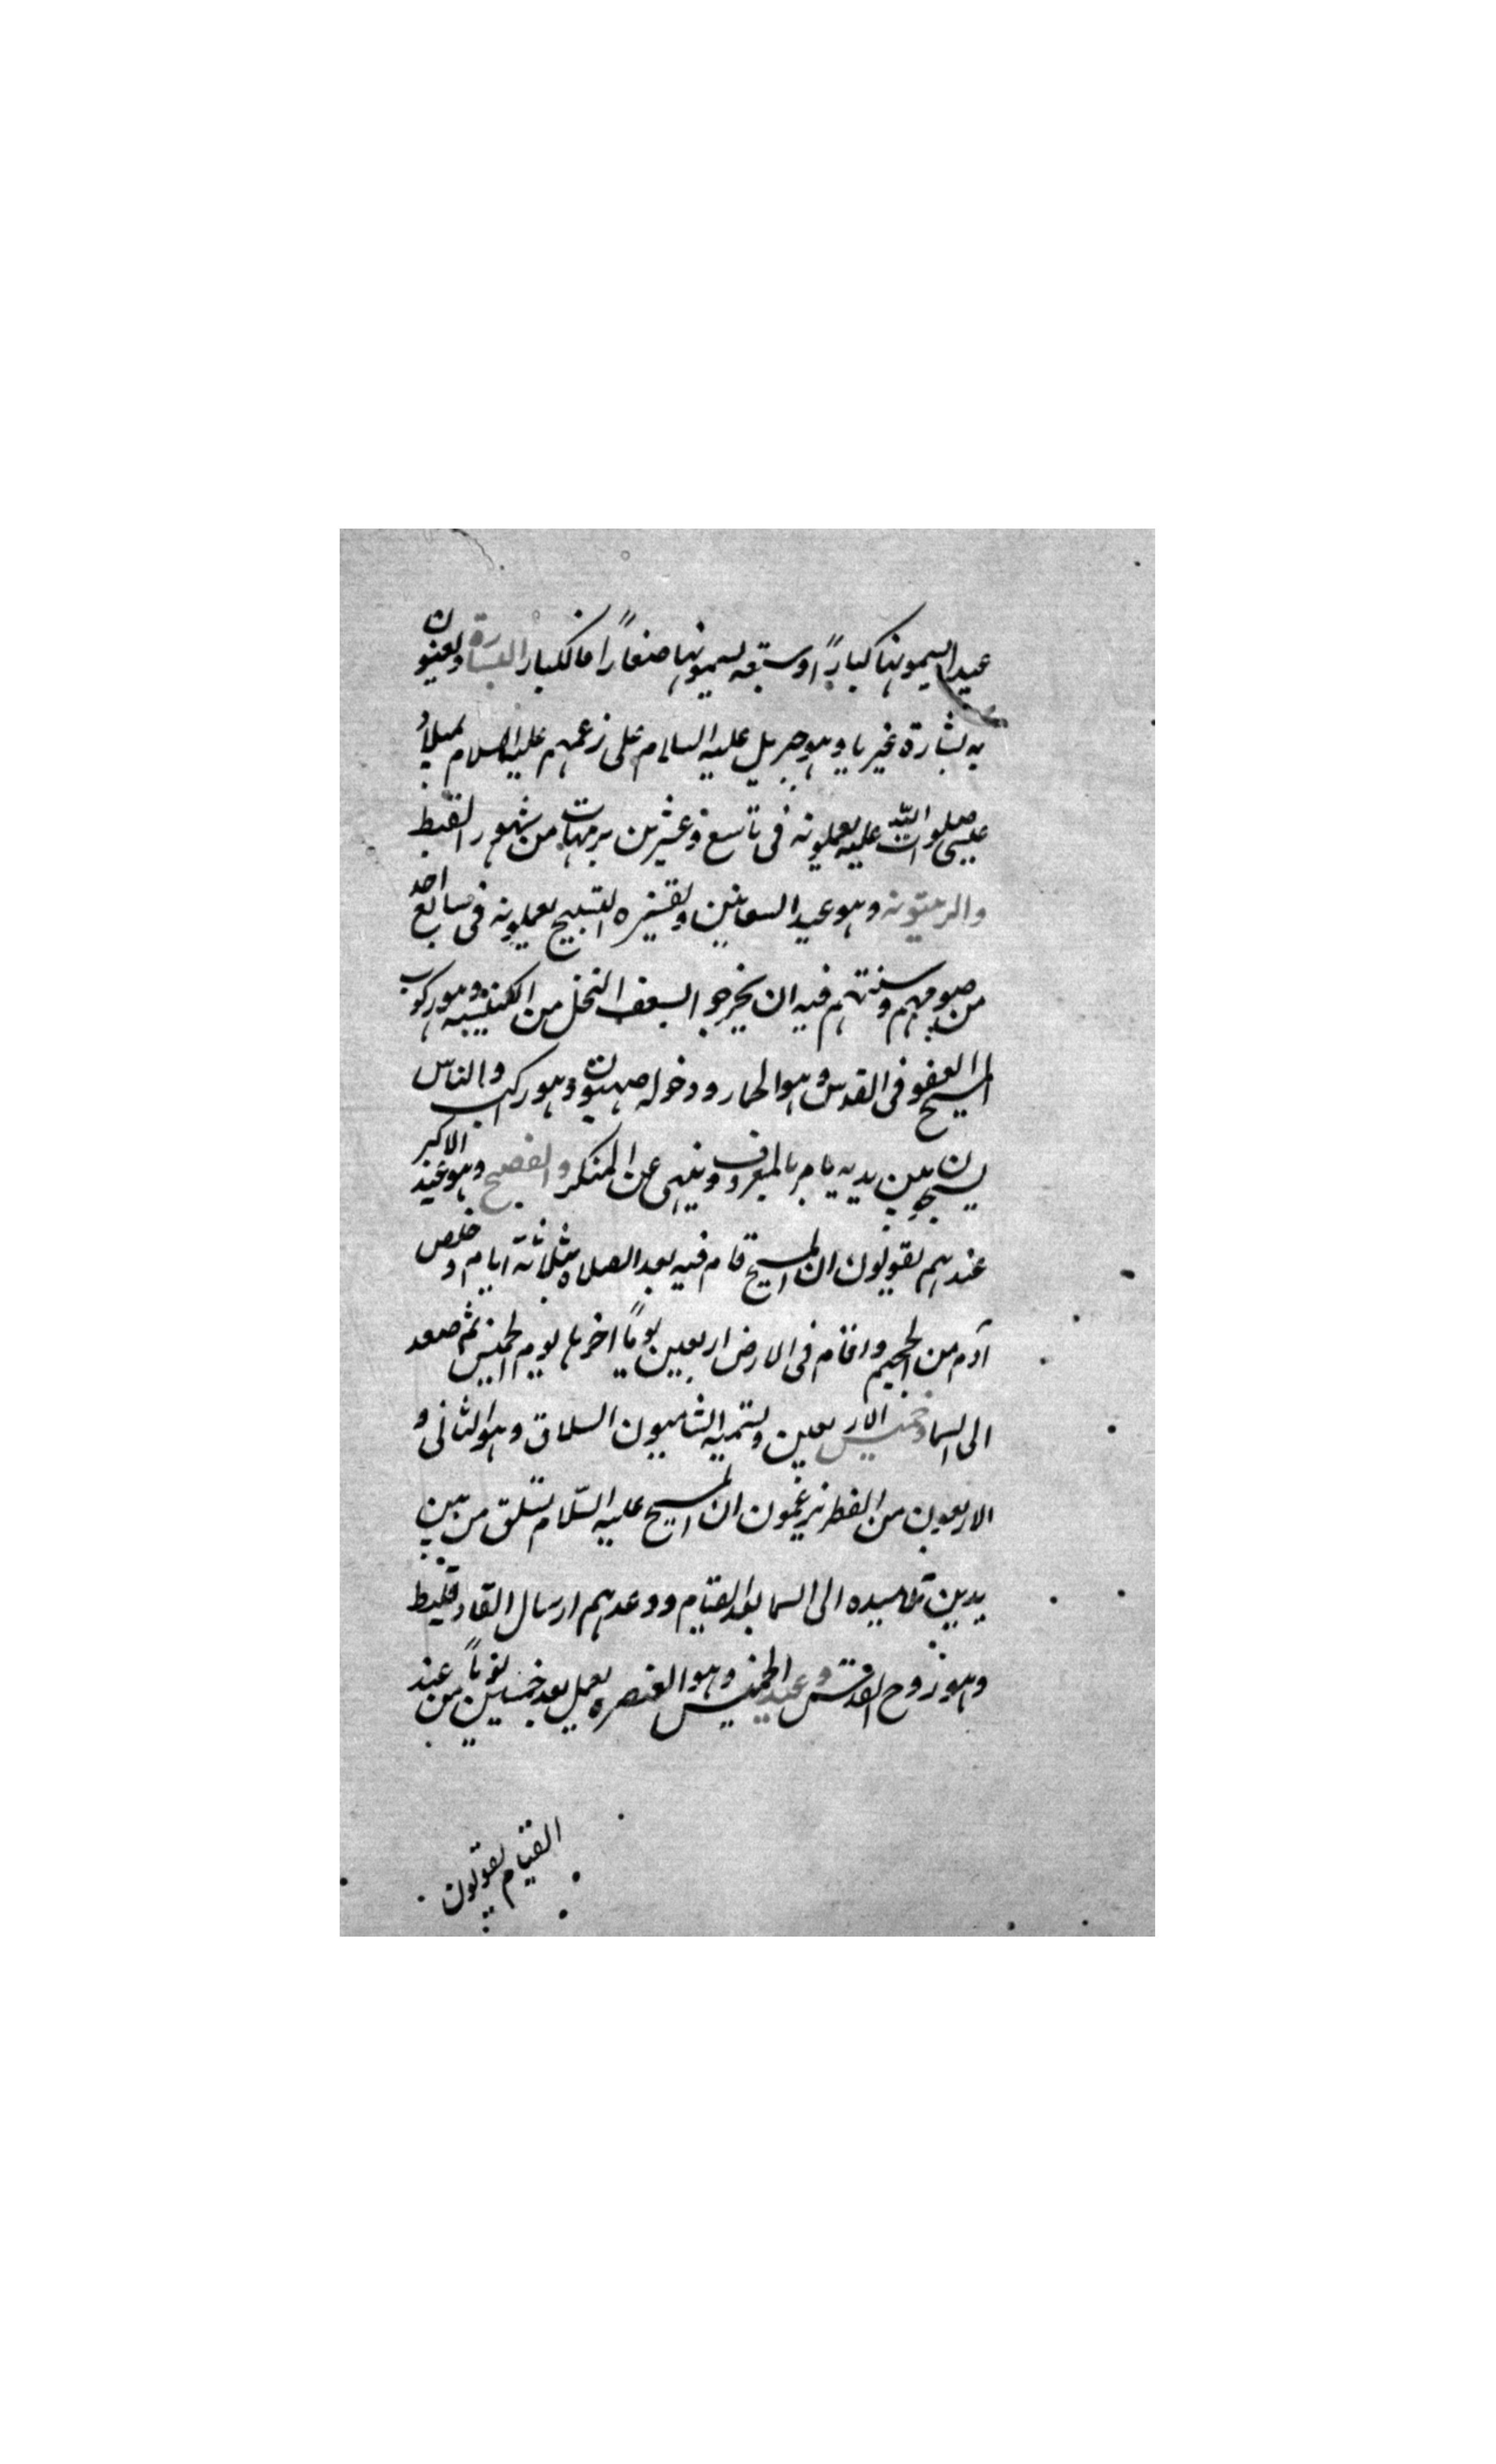 عيدا يسمونها كبارًا وسبعه يسمونها صغارًا فالكبار البشارة ويعنون
به بشارة غبريا وهو جبريل عليه السلام على زعمهم عليه السلام بميلاد
عيسى صلوات الله عليه يعملونه فى تاسع وعشرين برمهات من شهور القبط
والزيتونه وهو عيد السعانين وتفسيره التسبيح يعملونه فى سابع احد
من صومهم وسنتهم فيه ان يخرجوا بسعف النخل من الكنيسه وهو ركوب
المسيح العفو فى القدس وهو الحمار ودخوله صهيون وهو راكب والناس
يسبحون بين يديه يامر بالمعروف وينهى عن المنكر والفصح وهو عيد الاكبر
عندهم يقولون ان المسيح قام فيه بعد الصلاه بثلاثة ايام وخلص
آدم من الجحيم واقام فى الارض اربعين يومًا اخرها يوم الخميس ثم صعد
الى السما وخميس الاربعين وتسميه الشاميون السلاق وهو الثانى و
الاربعون من الفطر يزعمون ان المسيح عليه السلام تسلق من بين
يدين تلاميده الى السما بعد القيام ووعدهم ارسال الفارقليط
وهو روح القدس وعيد الخميس وهو العنصره يعمل بعد خمسين يومًا من عيد
القيام يقولون